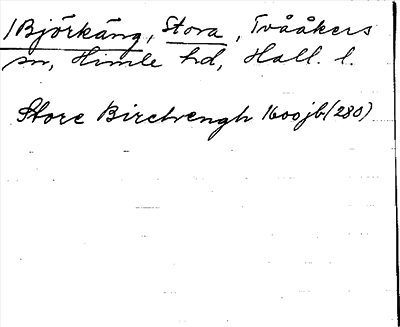 /Björkäng, Stora, Tvååkers
sn, Himle hd, Hall. l.
Store Birchengh 1600 jb (280)